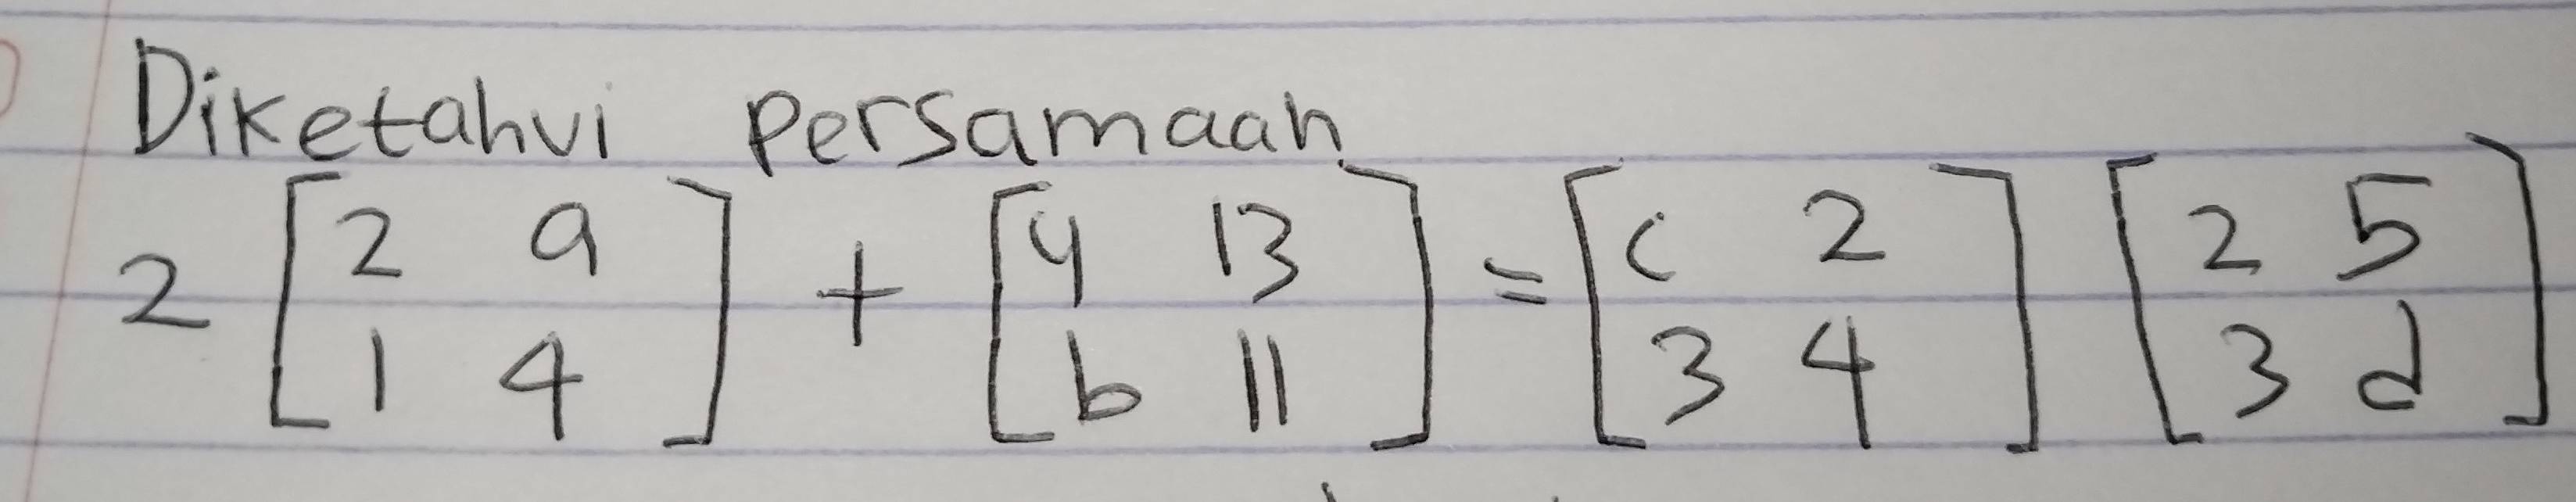 Diketahui Persamaan
2 [2 a; 1 4] + [4 13; b 11] = [c 2; 3 4] [2 5; 3 d]